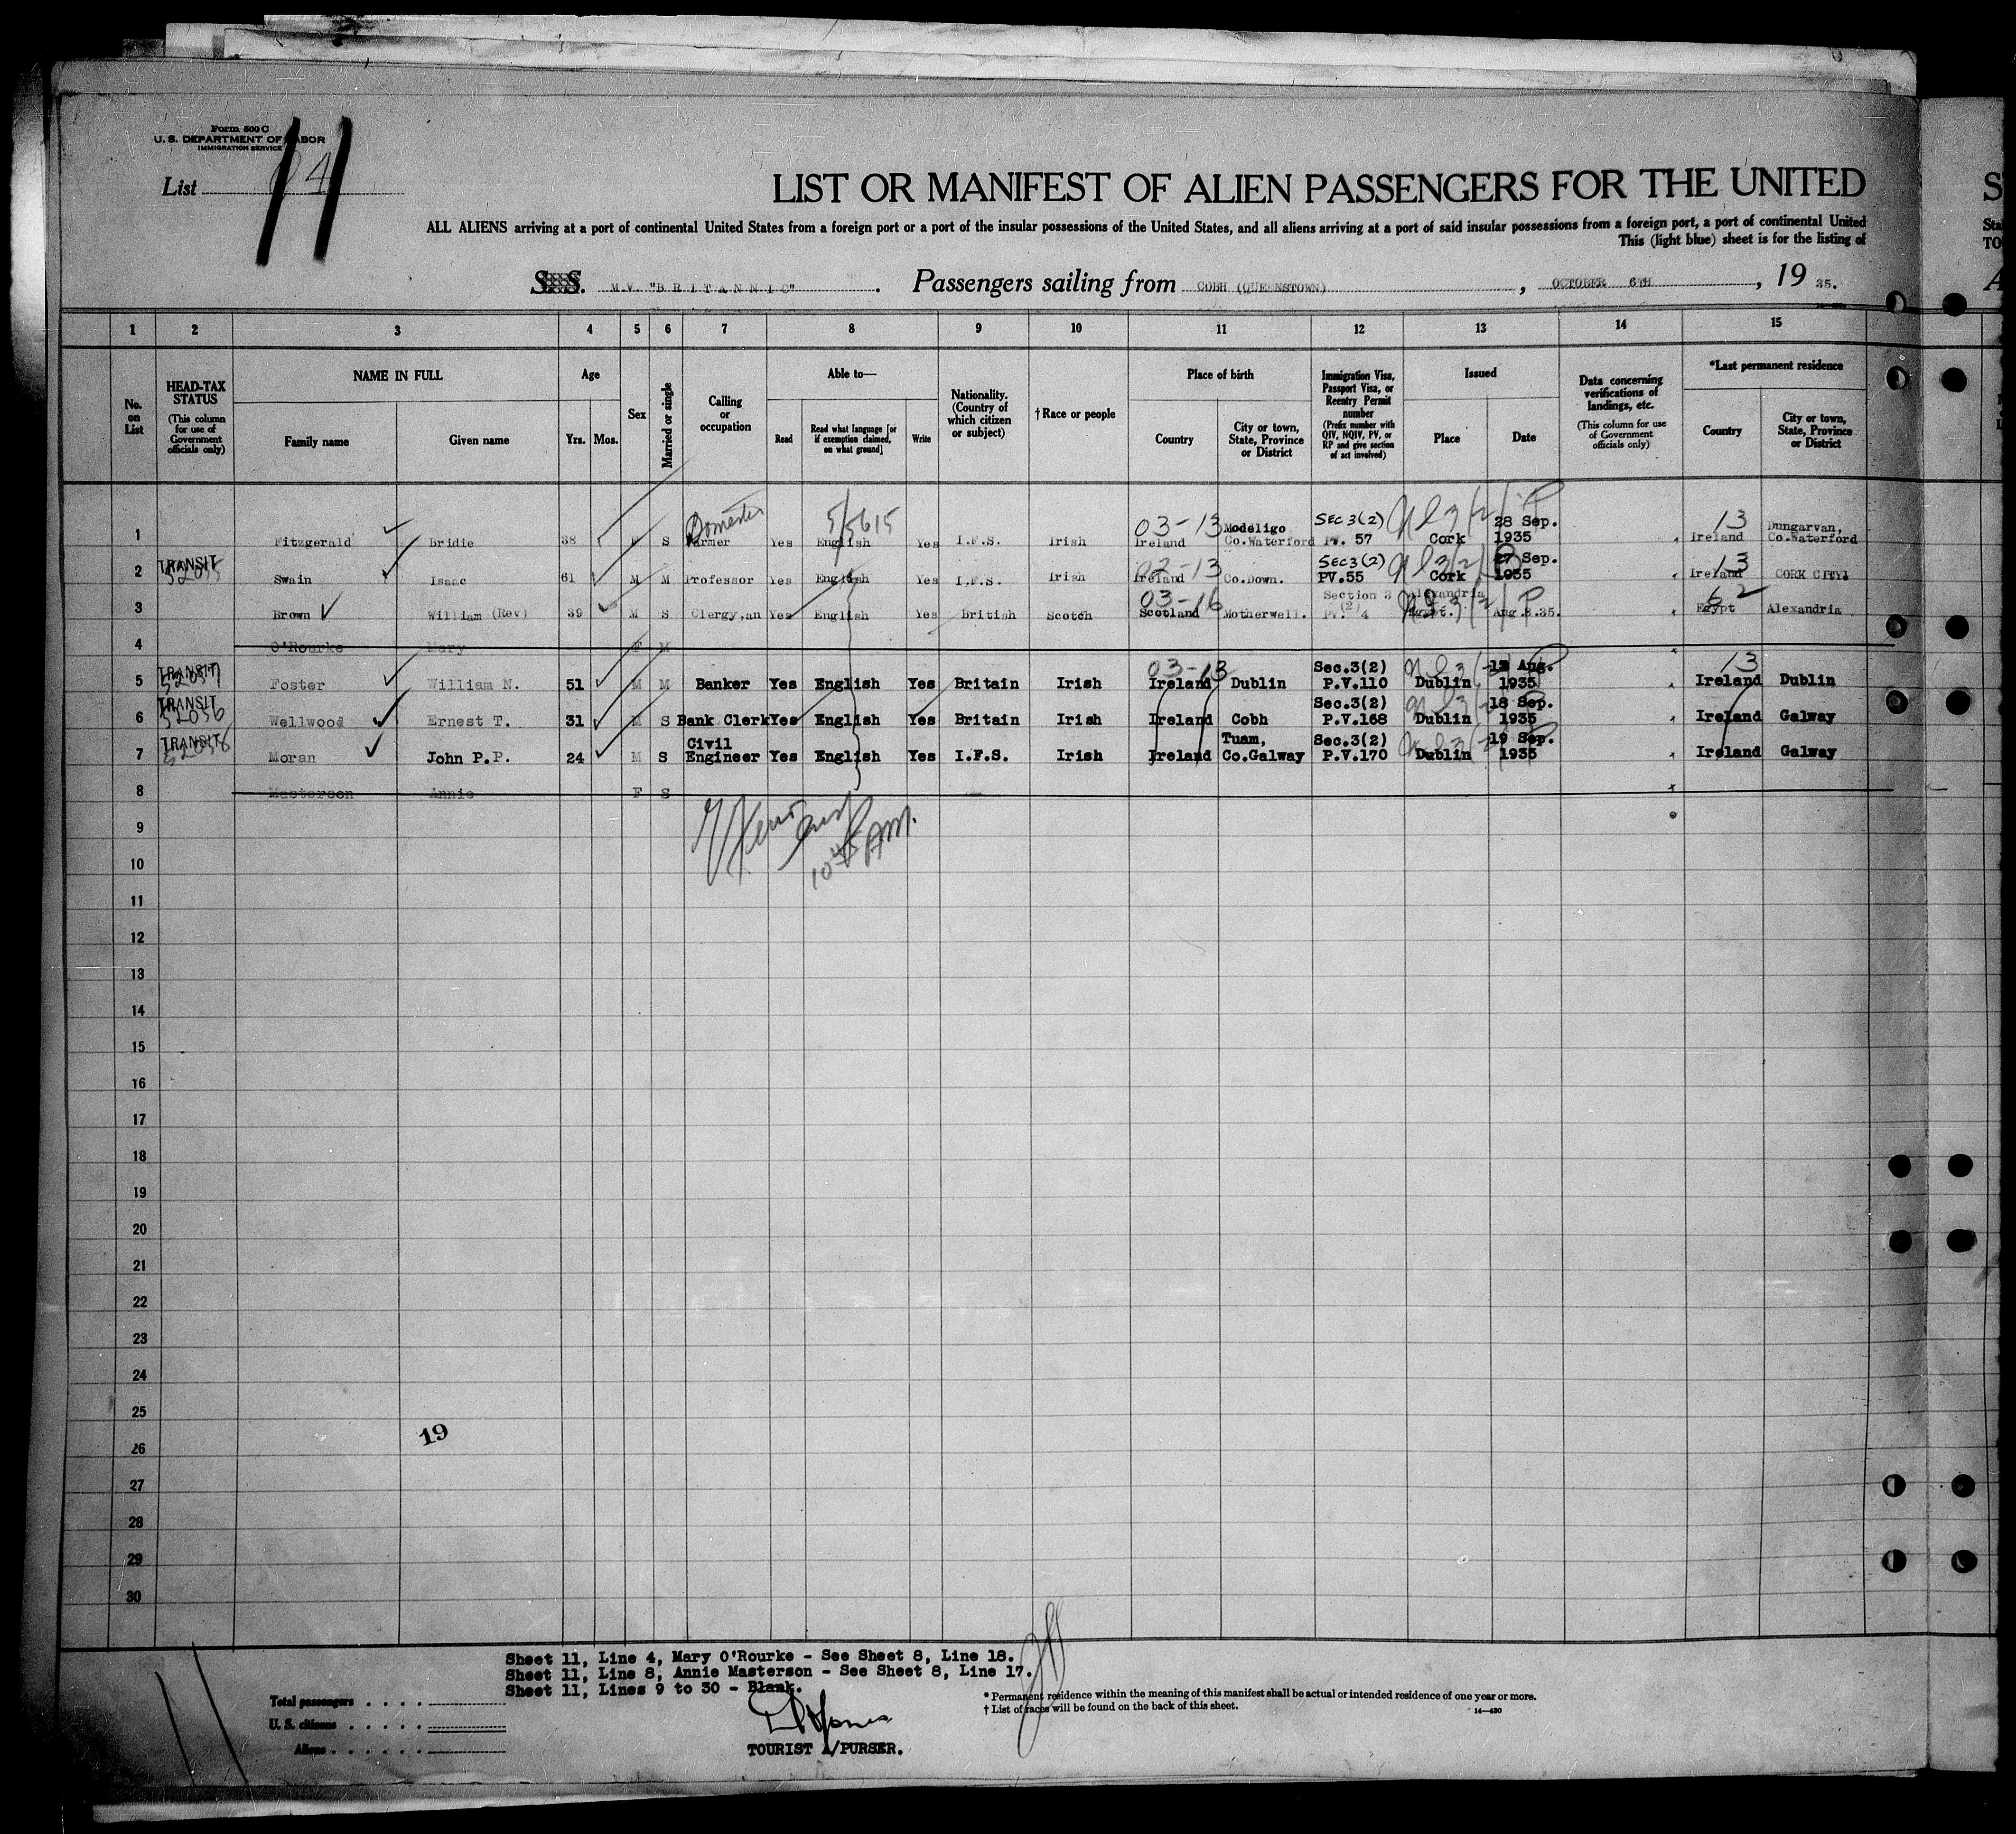 Form 500 C
U. S. DEPARTMENT OF LABOR
IMMIGRATION SERVICE
List
11
LIST OR MANIFEST OF ALIEN PASSENGERS FOR THE UNITED
ALL ALIENS arriving at a port of continental United States from a foreign port or a port of the insular possessions of the United States, and all aliens arriving at a port of said insular possessions from a foreign port, a port of continental United
This (light blue) sheet is for the listing of
S.S. M.V. "BRITANNIC". Passengers sailing from COBH (QUEENSTOWN), OCTOBER 6TH, 19 35.
1 2 3 4 5 6 7 8 9 10 11 12 13 14 15
No. on List
HEAD-TAX STATUS (This column for use of Government officials only)
NAME IN FULL
Family name
Given name
Age
Yrs. Mos.
Sex
Married or single
Calling or occupation
Able to—
Read
Read what language [or if exemption claimed, on what ground]
Write
Nationality. (Country of which citizen or subject)
† Race or people
Place of birth
Country
City or town, State, Province or District
Immigration Visa, Passport Visa, or Reentry Permit number (Prefix number with QIV, NQIV, PV, or RP and give section of act involved)
Issued
Place
Date
Data concerning verifications of landings, etc. (This column for use of Government officials only)
*Last permanent residence
Country
City or town, State, Province or District
1 Fitzgerald Bridie 38 F S Farmer Yes English Yes I.F.S. Irish 03-13 Ireland Modeligo Co.Waterford SEC 3(2) PV. 57 Cork 28 Sep. 1935 13 Ireland Dungarvan, Co.Waterford
2 TRANSIT Swain Isaac 61 M M Professor Yes English Yes I.F.S. Irish Ireland Co.Down. SEC 3(2) PV.55 Cork 27 Sep. 1935 13 Ireland CORK CITY
3 Brown William (Rev) 39 M S Clergy,an Yes English Yes British Scotch 03-16 Scotland Motherwell. Section 3 (2) PV. 4 Alexandria Egypt. Aug.8.35. 62 Egypt Alexandria
4 O'Rourke Mary F M
5 TRANSIT Foster William N. 51 M M Banker Yes English Yes Britain Irish 03-13 Ireland Dublin Sec.3(2) P.V.110 Dublin Aug. 1935 13 Ireland Dublin
6 TRANSIT 52056 Wellwood Ernest T. 31 M S Bank Clerk Yes English Yes Britain Irish Ireland Cobh Sec.3(2) P.V.168 Dublin 18 Sep. 1935 Ireland Galway
7 TRANSIT 52058 Moran John P.P. 24 M S Civil Engineer Yes English Yes I.F.S. Irish Ireland Tuam, Co.Galway Sec.3(2) P.V.170 Dublin 19 Sep. 1935 Ireland Galway
8 Masterson Annie F S
9
10
11
12
13
14
15
16
17
18
19
20
21
22
23
24
25
26
27
28
29
30
19
Sheet 11, Line 4, Mary O'Rourke - See Sheet 8, Line 18.
Sheet 11, Line 8, Annie Masterson - See Sheet 8, Line 17.
Sheet 11, Lines 9 to 30 - Blank.
Total passengers
U. S. citizens
Aliens
TOURIST A/PURSER.
* Permanent residence within the meaning of this manifest shall be actual or intended residence of one year or more.
† List of races will be found on the back of this sheet.
14—430